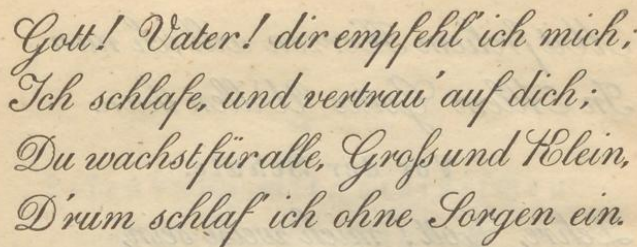 Gott! Vater! dir empfehl' ich mich;
Ich schlafe, und vertrau' auf dich;
Du wachst für alle, Groſs und Klein,
D'rum schlaf' ich ohne Sorgen ein.